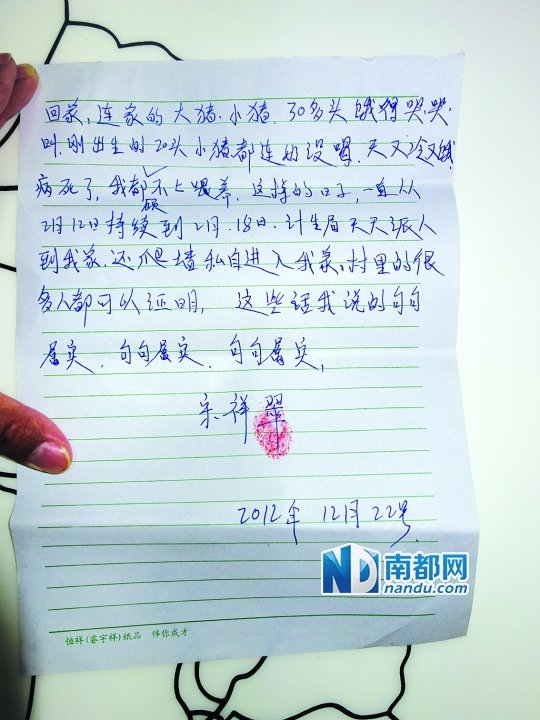 回家、连家的大猪.小猪.30多头饿得哭.哭.
叫.刚出生的20头小猪都连奶没喝.天又冷又饿
病死了,我都不上喂养.这样的日子,一直从
顾
2月12日持续到2月.18日.计生局天天派人
到我家.还爬墙私自进入我家,村里的很
多人都可以证明,这些话我说的句句
属实.句句属实.句句属实,
宋祥翠
2012年12月22号.
ND 南都网
nandu.com
恒祥(睿宇祥)纸品 伴你成才